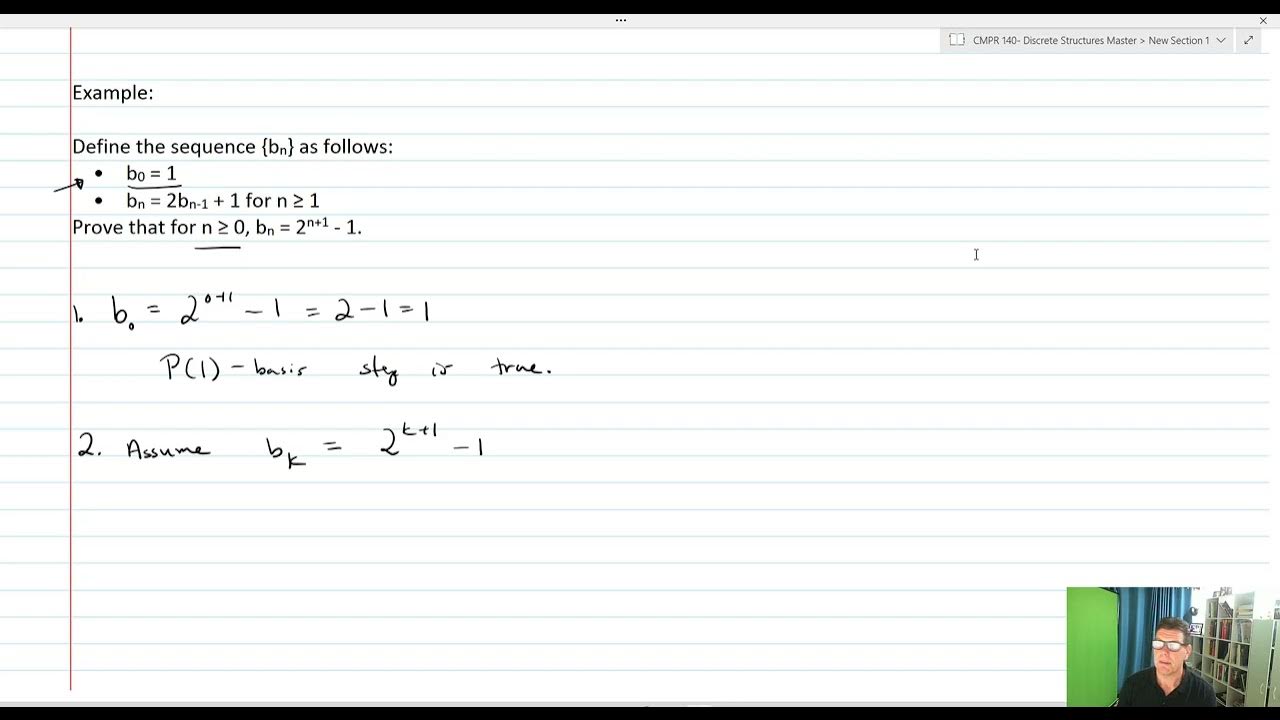 ...
CMPR 140- Discrete Structures Master > New Section 1
Example:
Define the sequence {bₙ} as follows:
• b₀ = 1
• bₙ = 2bₙ₋₁ + 1 for n ≥ 1
Prove that for n ≥ 0, bₙ = 2ⁿ⁺¹ - 1.
1. b₀ = 2⁰⁺¹ - 1 = 2 - 1 = 1
P(1) - basis step is true.
2. Assume bₖ = 2ᵏ⁺¹ - 1